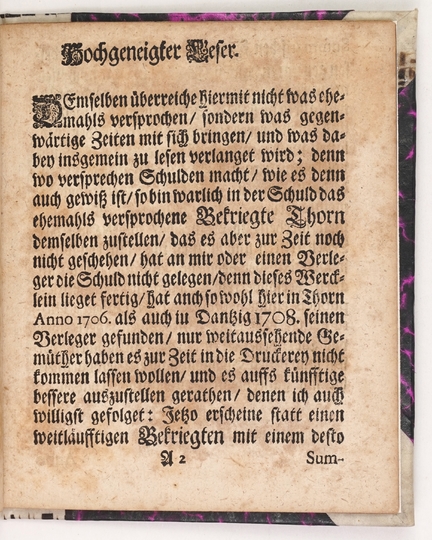 Hochgeneigter Leser.
DEmselben überreiche hiermit nicht was ehe-
mahls versprochen / sondern was gegen-
wärtige Zeiten mit sich bringen / und was da-
bey insgemein zu lesen verlanget wird; denn
wo versprechen Schulden macht / wie es denn
auch gewiß ist / so bin warlich in der Schuld das
ehemahls versprochene Bekriegte Thorn
demselben zustellen / das es aber zur Zeit noch
nicht geschehen / hat an mir oder einen Verle-
ger die Schuld nicht gelegen / denn dieses Werck-
lein lieget fertig / hat auch so wohl hier in Thorn
Anno 1706. als auch in Dantzig 1708. seinen
Verleger gefunden / nur weitaussehende Ge-
müther haben es zur Zeit in die Druckerey nicht
kommen lassen wollen / und es auffs künfftige
bessere auszustellen gerathen / denen ich auch
willigst gefolget: Jetzo erscheine statt einen
weitläufftigen Bekriegten mit einem desto
A 2 Sum-